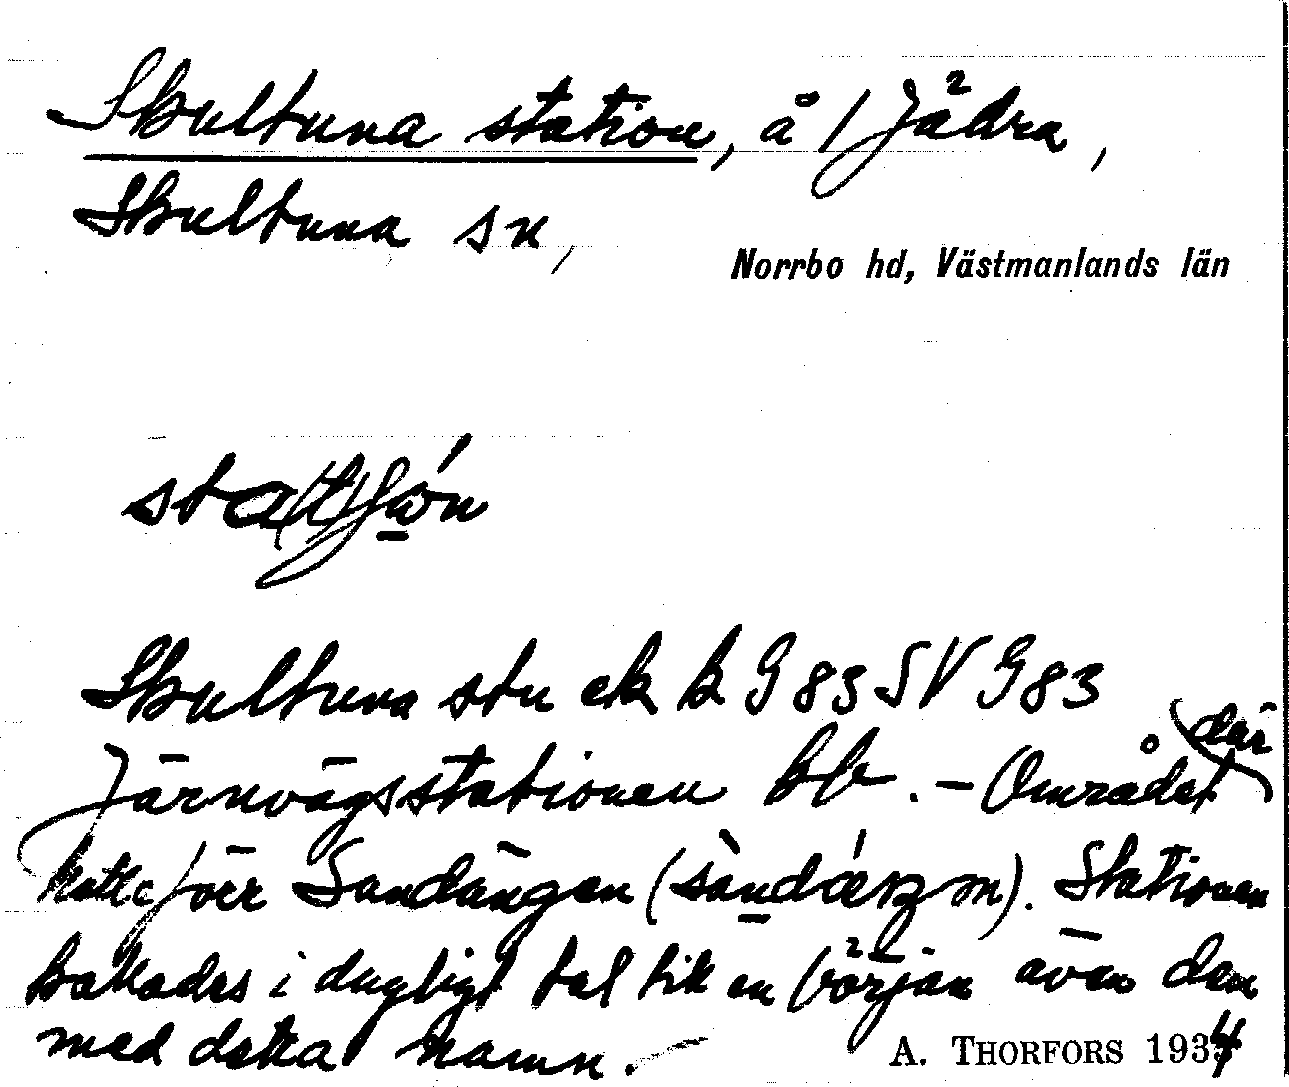 Skultuna station, å 1 Jädra,
Skultuna sn,
Norrbo hd, Västmanlands län
Skultuna stn ek bl G 83 SV G 83
Järnvägsstationen bb. – Området där
hette förr Sandängen (). Stationen
kallades i dagligt tal till en början även den
med detta namn. –
A. THORFORS 1934